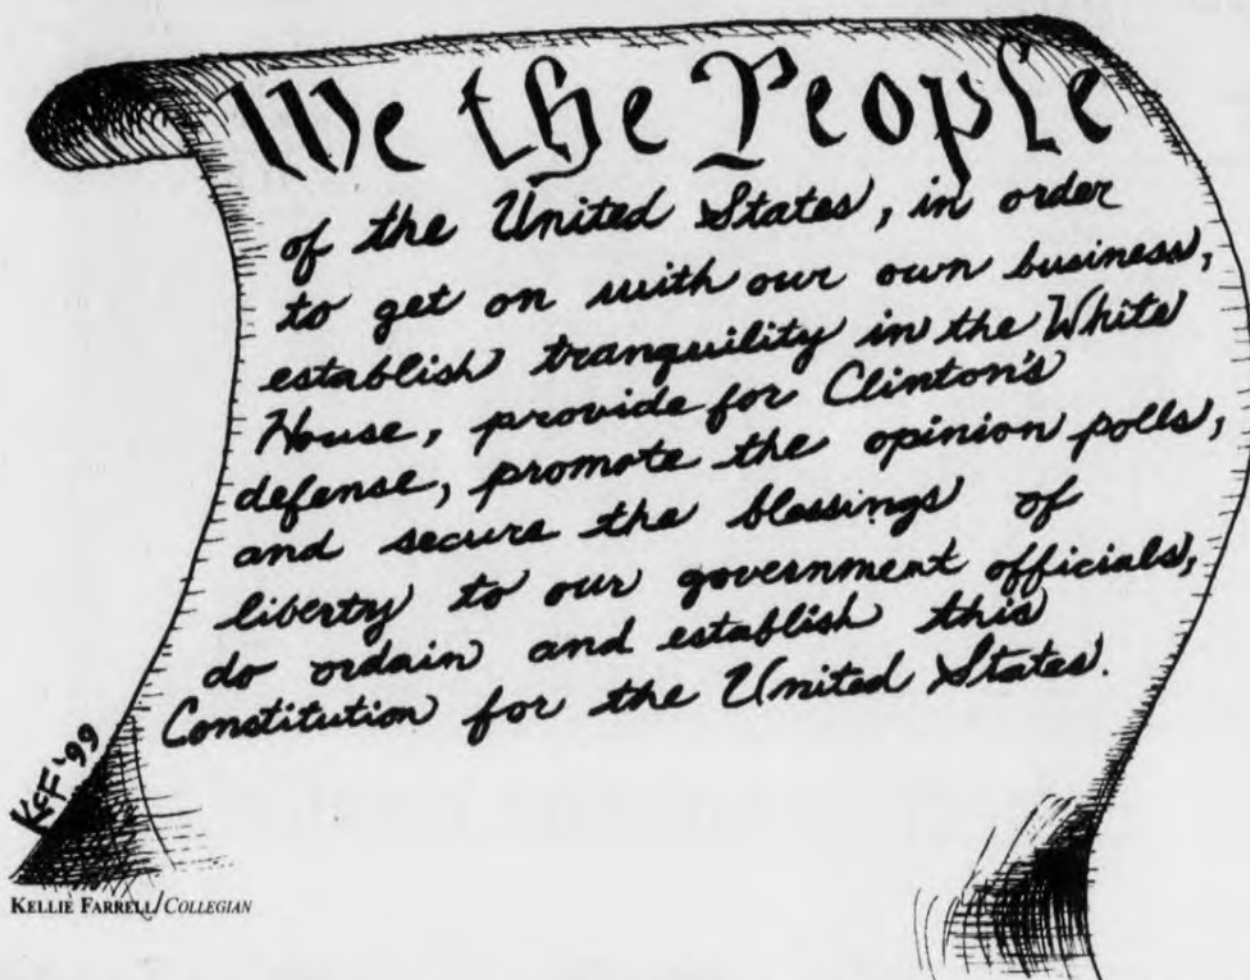 We the People
of the United States, in order
to get on with our own business,
establish tranquility in the White
House, provide for Clinton's
defense, promote the opinion polls,
and secure the blessings of
liberty to our government officials,
do ordain and establish this
Constitution for the United States.
KCF '99
KELLIE FARRELL/COLLEGIAN